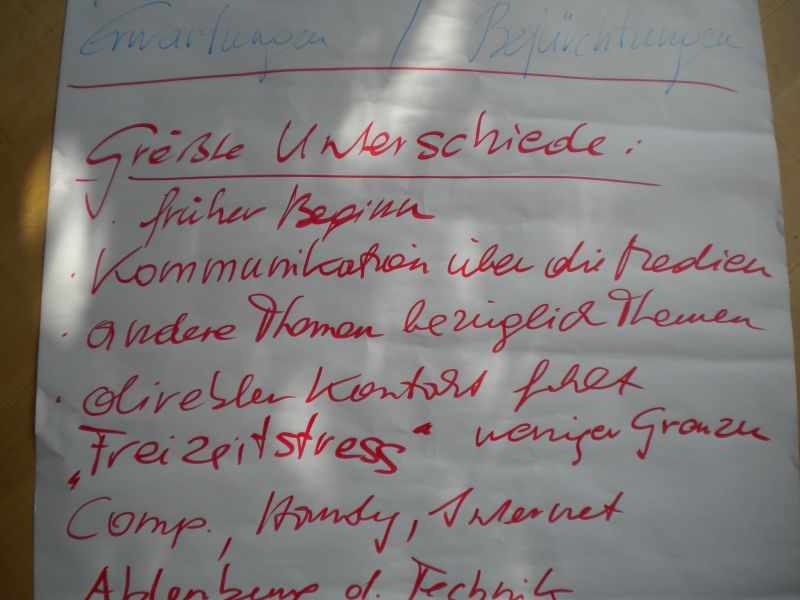 Erwartungen / Befürchtungen
Größte Unterschiede:
· früher Beginn
· Kommunikation über die Medien
· andere Themen bezüglich Themen
· direkter Kontakt fehlt
„Freizeitstress“ weniger Grenzen
Comp., Handy, Internet
Ablenkung d. Technik